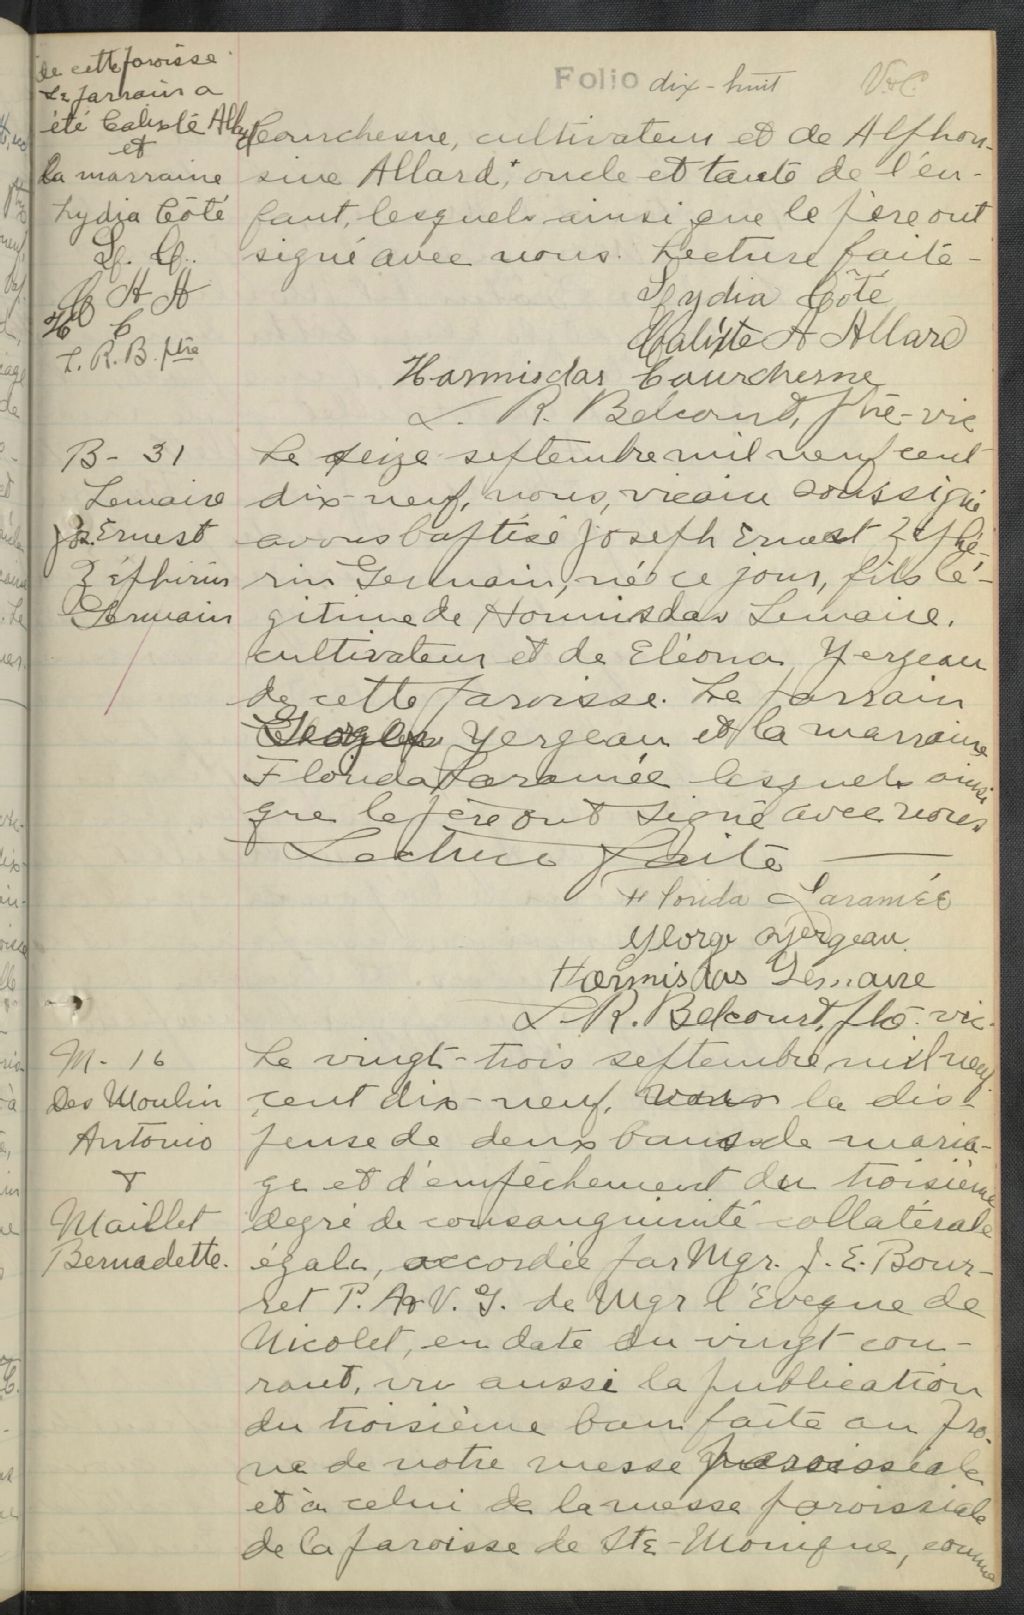 Folio dix-huit
de cette paroisse
Le parrain a
été Calixte Allard
et
la marraine
Lydia Côté
L. C.
C A A
H C
L. R. B. ptre
Courchesne, cultivateur et de Alphon-
sine Allard, oncle et tante de l'en-
fant, lesquels ainsi que le père ont
signé avec nous. Lecture faite -
Lydia Côté
Calixte A Allard
Hormisdas Courchesne
L. R. Belcourt, ptre-vic
B- 31
Lemaire
Jos. Ernest
Zéphirin
Germain
Le seize septembre mil neuf cent
dix-neuf, nous, vicaire soussigné
avons baptisé Joseph Ernest Zéphi-
rin Germain, né ce jour, fils lé-
gitime de Hormisdas Lemaire,
cultivateur et de Eléona Yergeau
de cette paroisse. Le parrain
Georges Yergeau et la marraine
Florida Laramée lesquels ainsi
que le père ont signé avec nous
Lecture faite
Florida Laramée
George Yergeau
Hormisdas Lemaire
L. R. Belcourt, ptre. vic.
M- 16
Des Moulin
Antonio
&
Maillet
Bernadette.
Le vingt-trois septembre mil neuf
cent dix-neuf, vu la dis-
pense de deux bans de maria-
ge et d'empêchement du troisième
degré de consanguinité collatérale
égale, accordée par Mgr. J. E. Bour-
ret P. A. V. G. de Mgr l'Evêque de
Nicolet, en date du vingt cou-
rant, vu aussi la publication
du troisième ban faite au prô-
ne de notre messe paroissiale
et à celui de la messe paroissiale
de la paroisse de Ste-Monique, comme